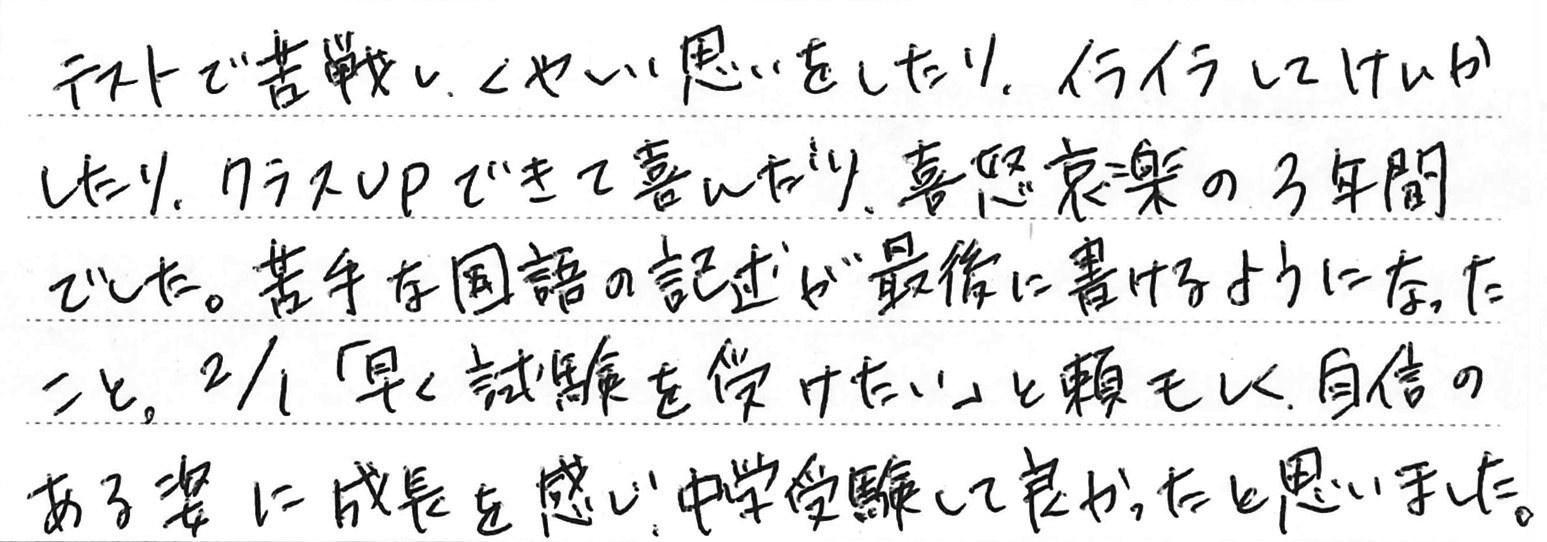 テストで苦戦し、くやしい思いをしたり、イライラしてけんか
したり、クラスUPできて喜んだり、喜怒哀楽の3年間
でした。苦手な国語の記述が最後に書けるようになった
こと。2/1「早く試験を受けたい」と頼もしく、自信の
ある姿に成長を感じ、中学受験して良かったと思いました。